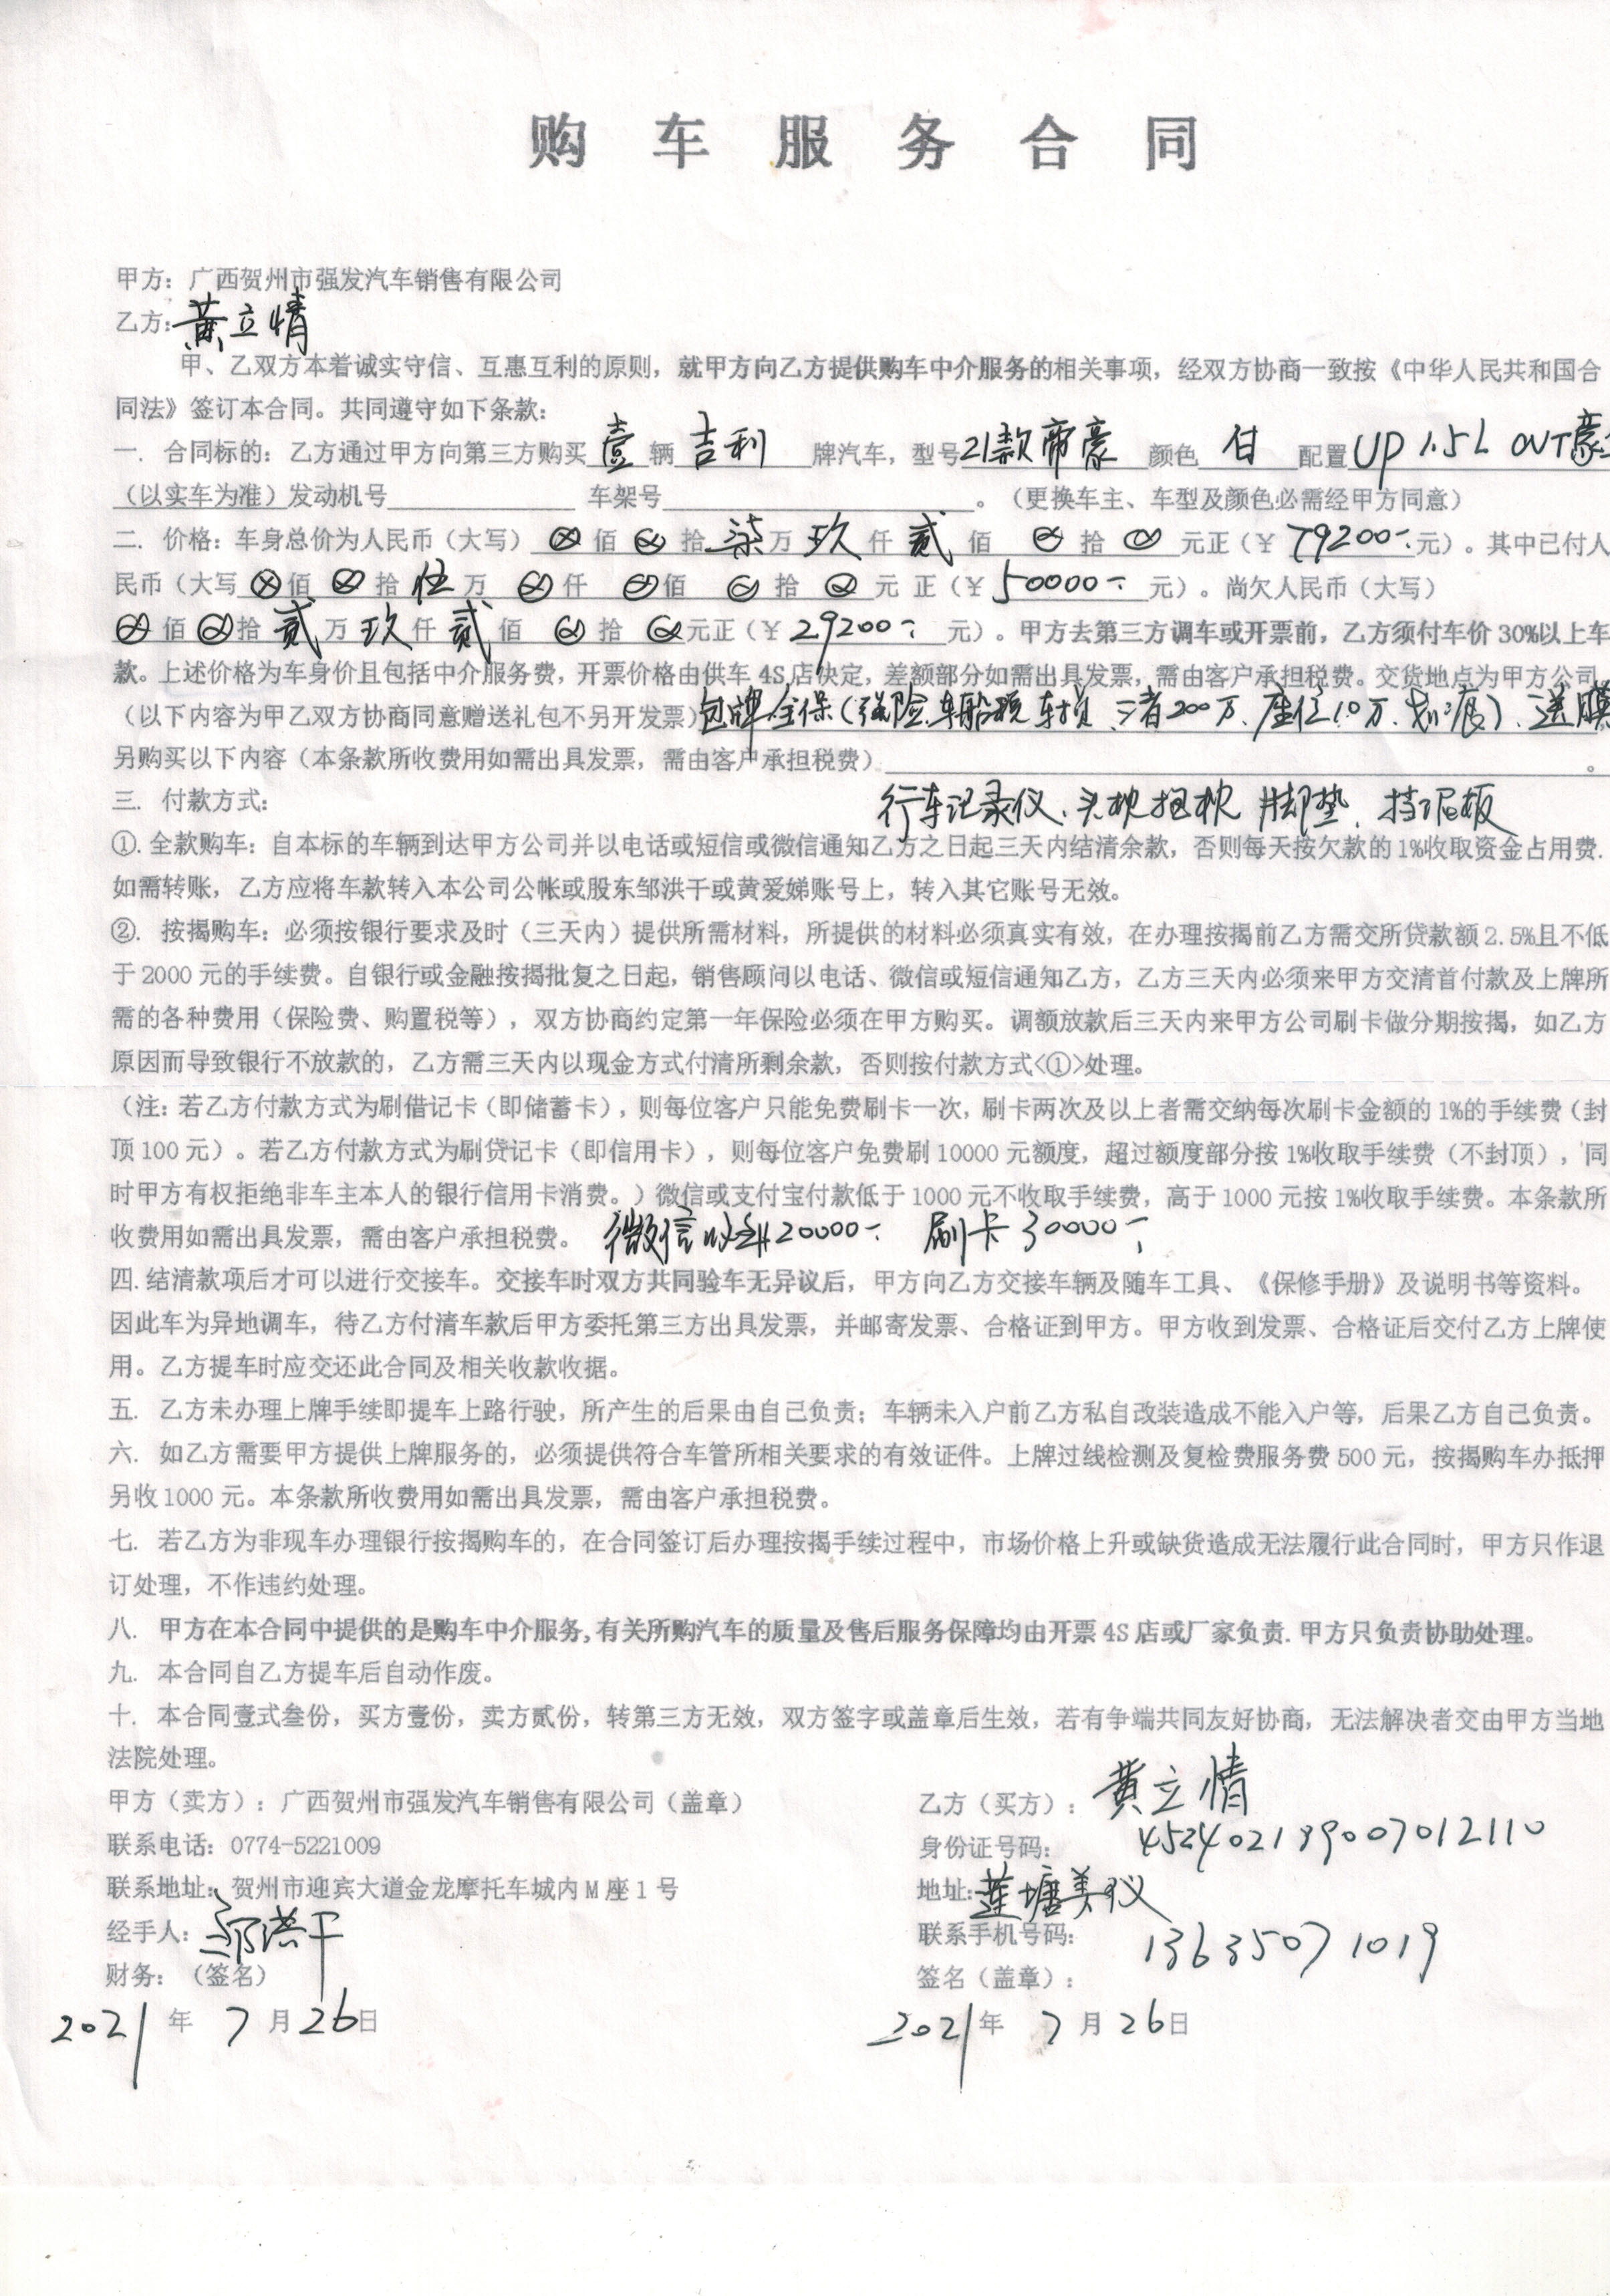 购车服务合同
甲方：广西贺州市强发汽车销售有限公司
乙方：黄立情
甲、乙双方本着诚实守信、互惠互利的原则，就甲方向乙方提供购车中介服务的相关事项，经双方协商一致按《中华人民共和国合
同法》签订本合同。共同遵守如下条款：
一. 合同标的：乙方通过甲方向第三方购买 壹 辆 吉利 牌汽车，型号 21款帝豪 颜色 白 配置 UP 1.5L CVT豪
（以实车为准）发动机号 车架号 。（更换车主、车型及颜色必需经甲方同意）
二. 价格：车身总价为人民币（大写）⊗ 佰 ⊗ 拾 柒 万 玖 仟 贰 佰 ⊗ 拾 ⊗ 元正（￥79200-元）。其中已付人
民币（大写 ⊗ 佰 ⊗ 拾 伍 万 ⊗ 仟 ⊗ 佰 ⊗ 拾 ⊗ 元 正（￥50000- 元）。尚欠人民币（大写）
⊗ 佰 ⊗ 拾 贰 万 玖 仟 贰 佰 ⊗ 拾 ⊗ 元正（￥29200- 元）。甲方去第三方调车或开票前，乙方须付车价 30%以上车
款。上述价格为车身价且包括中介服务费，开票价格由供车 4S 店决定，差额部分如需出具发票，需由客户承担税费。交货地点为甲方公司。
（以下内容为甲乙双方协商同意赠送礼包不另开发票）包牌全保（强险、车船税 车损、三者200万、座位10万、划痕）、送膜
另购买以下内容（本条款所收费用如需出具发票，需由客户承担税费） 。
行车记录仪、头枕抱枕 脚垫、挡泥板
三. 付款方式：
①. 全款购车：自本标的车辆到达甲方公司并以电话或短信或微信通知乙方之日起三天内结清余款，否则每天按欠款的 1%收取资金占用费.
如需转账，乙方应将车款转入本公司公帐或股东邹洪干或黄爱娣账号上，转入其它账号无效。
②. 按揭购车：必须按银行要求及时（三天内）提供所需材料，所提供的材料必须真实有效，在办理按揭前乙方需交所贷款额 2.5%且不低
于 2000 元的手续费。自银行或金融按揭批复之日起，销售顾问以电话、微信或短信通知乙方，乙方三天内必须来甲方交清首付款及上牌所
需的各种费用（保险费、购置税等），双方协商约定第一年保险必须在甲方购买。调额放款后三天内来甲方公司刷卡做分期按揭，如乙方
原因而导致银行不放款的，乙方需三天内以现金方式付清所剩余款，否则按付款方式<①>处理。
（注：若乙方付款方式为刷借记卡（即储蓄卡），则每位客户只能免费刷卡一次，刷卡两次及以上者需交纳每次刷卡金额的 1%的手续费（封
顶 100 元）。若乙方付款方式为刷贷记卡（即信用卡），则每位客户免费刷 10000 元额度，超过额度部分按 1%收取手续费（不封顶），同
时甲方有权拒绝非车主本人的银行信用卡消费。）微信或支付宝付款低于 1000 元不收取手续费，高于 1000 元按 1%收取手续费。本条款所
收费用如需出具发票，需由客户承担税费。 微信 20000- 刷卡 30000-
四. 结清款项后才可以进行交接车。交接车时双方共同验车无异议后，甲方向乙方交接车辆及随车工具、《保修手册》及说明书等资料。
因此车为异地调车，待乙方付清车款后甲方委托第三方出具发票，并邮寄发票、合格证到甲方。甲方收到发票、合格证后交付乙方上牌使
用。乙方提车时应交还此合同及相关收款收据。
五. 乙方未办理上牌手续即提车上路行驶，所产生的后果由自己负责；车辆未入户前乙方私自改装造成不能入户等，后果乙方自己负责。
六. 如乙方需要甲方提供上牌服务的，必须提供符合车管所相关要求的有效证件。上牌过线检测及复检费服务费 500 元，按揭购车办抵押
另收 1000 元。本条款所收费用如需出具发票，需由客户承担税费。
七. 若乙方为非现车办理银行按揭购车的，在合同签订后办理按揭手续过程中，市场价格上升或缺货造成无法履行此合同时，甲方只作退
订处理，不作违约处理。
八. 甲方在本合同中提供的是购车中介服务,有关所购汽车的质量及售后服务保障均由开票 4S 店或厂家负责.甲方只负责协助处理。
九. 本合同自乙方提车后自动作废。
十. 本合同壹式叁份，买方壹份，卖方贰份，转第三方无效，双方签字或盖章后生效，若有争端共同友好协商，无法解决者交由甲方当地
法院处理。
甲方（卖方）：广西贺州市强发汽车销售有限公司（盖章） 乙方（买方）：黄立情
联系电话：0774-5221009 身份证号码：452402199007012110
联系地址：贺州市迎宾大道金龙摩托车城内 M 座 1 号 地址：莲塘美仪
经手人：邹洪干 联系手机号码：13635071019
财务：（签名） 签名（盖章）：
2021 年 7 月 26 日 2021 年 7 月 26 日